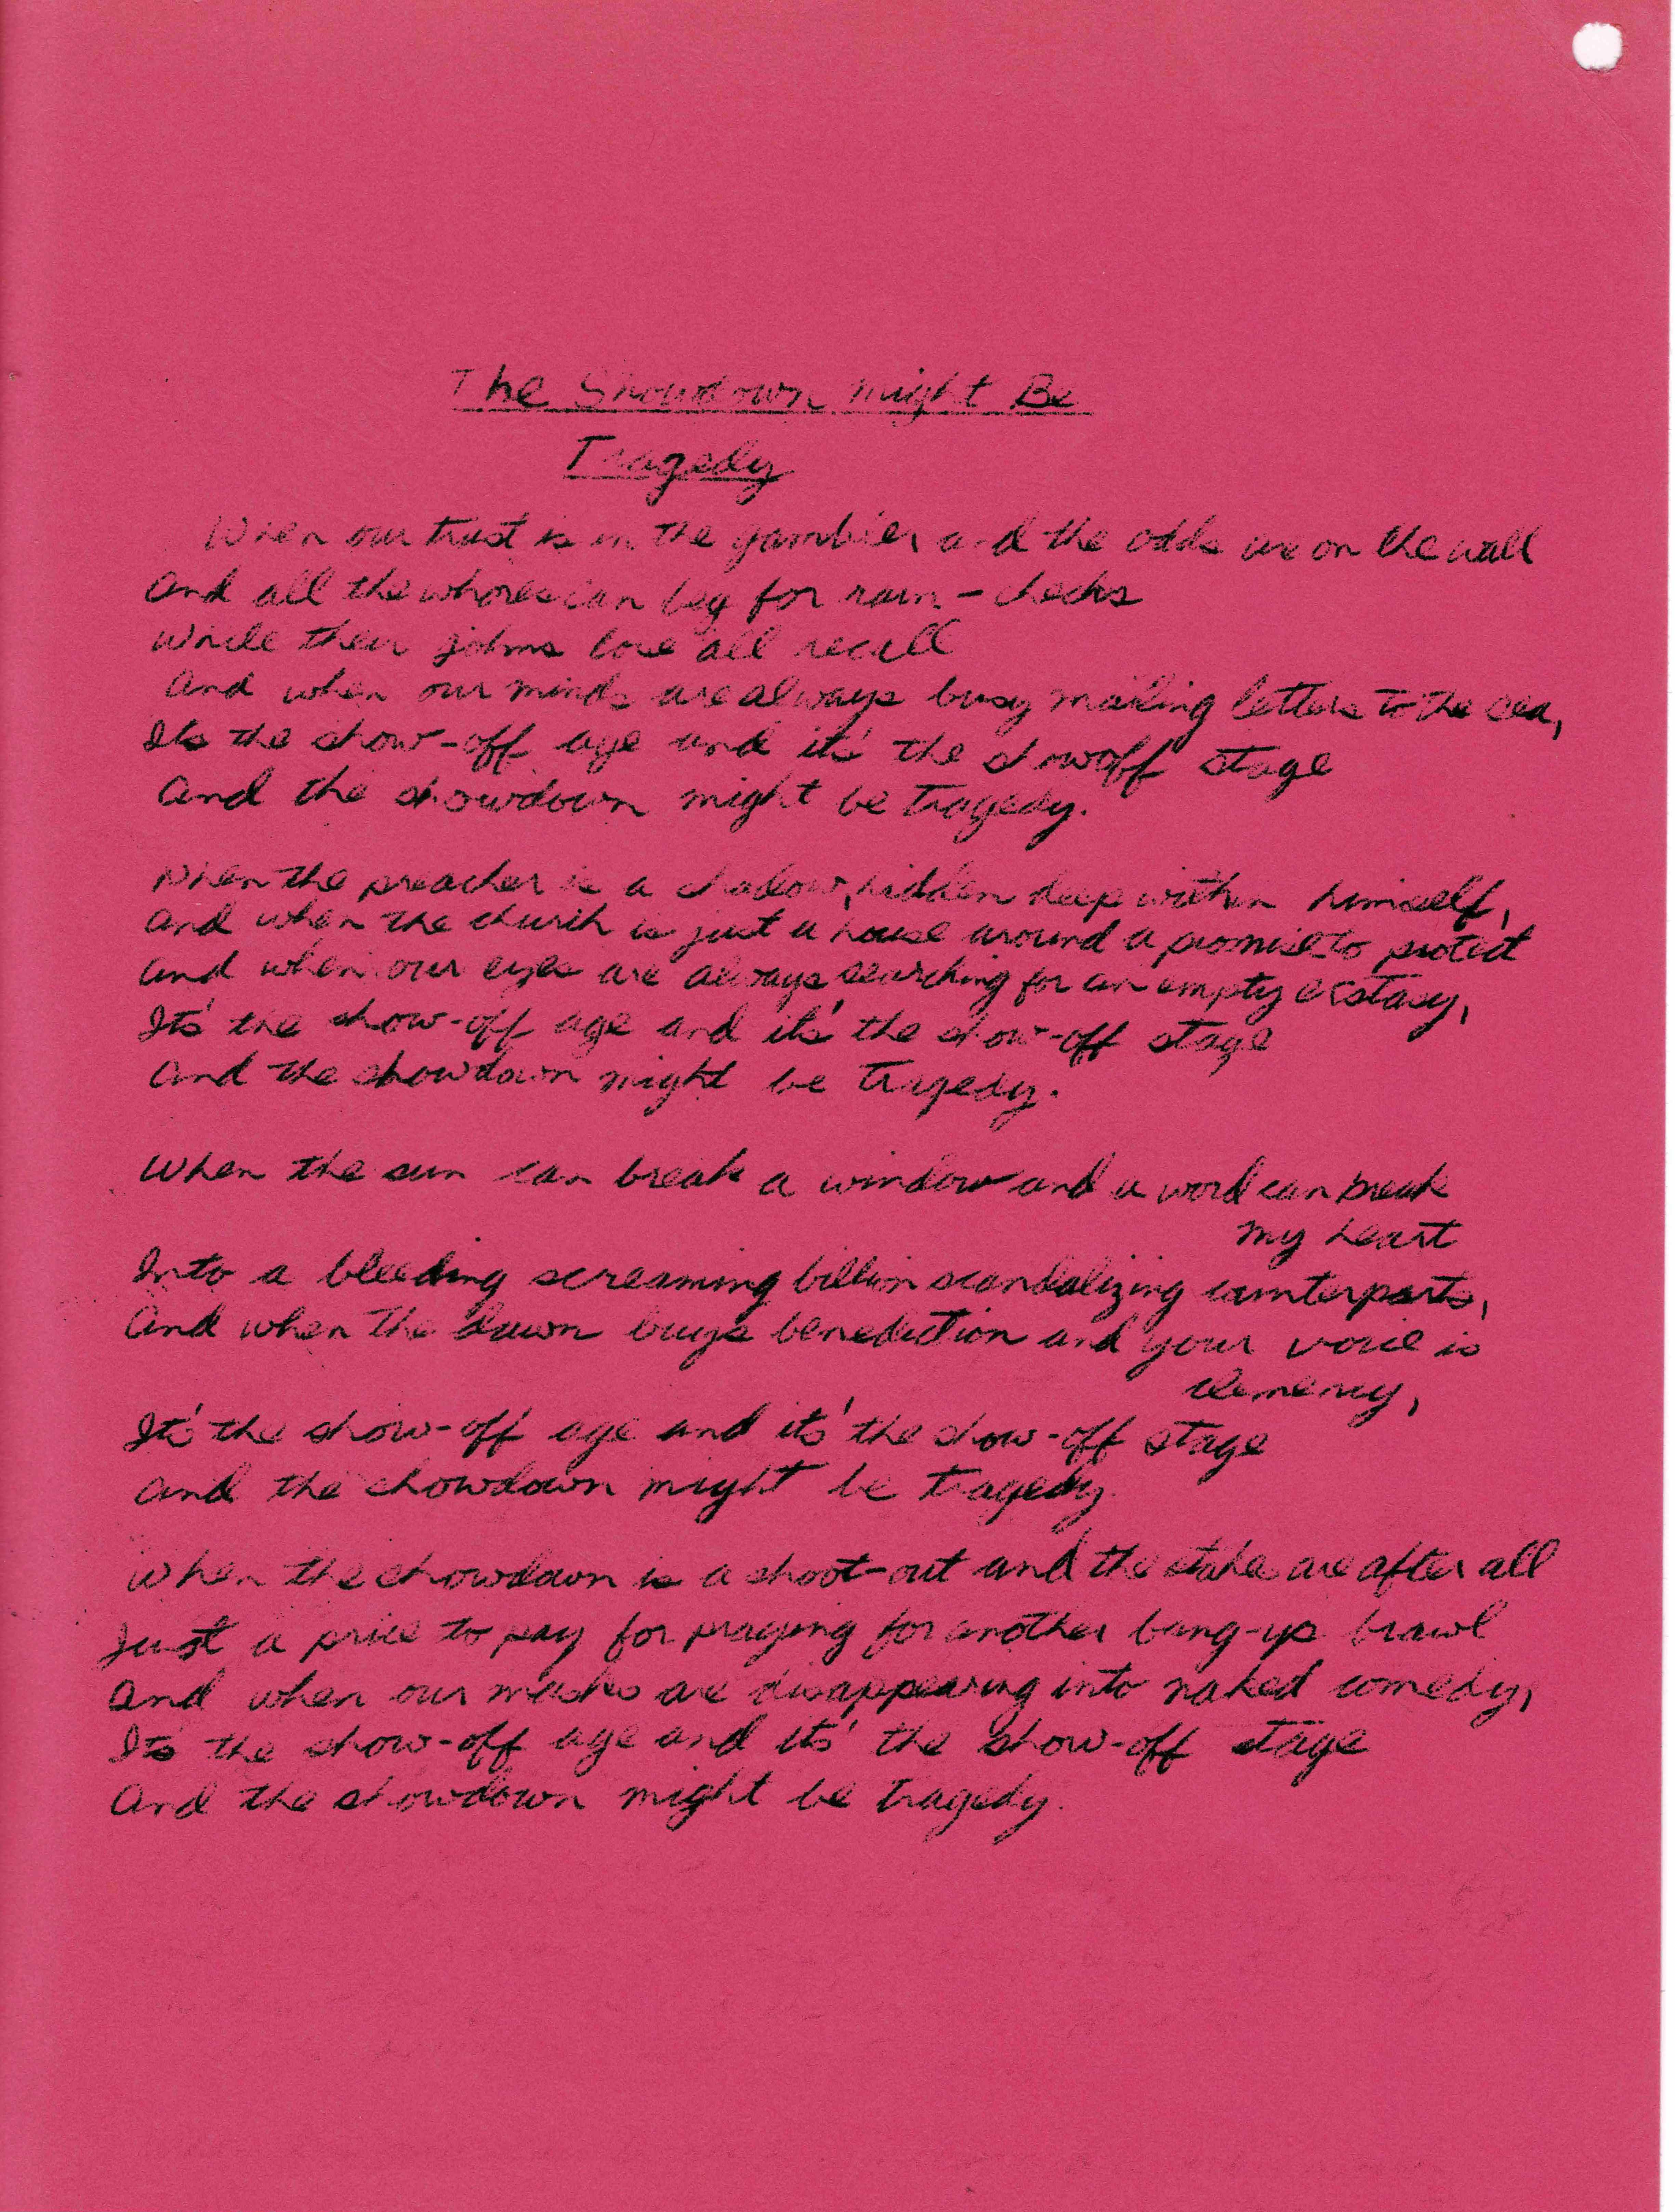 The Showdown Might Be
Tragedy
When our trust is in the gambler and the odds are on the wall
And all the whores can beg for rain-checks
While their johns lose all recall
And when our minds are always busy mailing letters to the sea,
Its the show-off age and its' the showoff stage
And the showdown might be tragedy.
When the preacher is a shadow, hidden deep within himself,
And when the church is just a house around a promise to protect
And when our eyes are always searching for an empty ecstasy,
Its' the show-off age and its' the show-off stage
And the showdown might be tragedy.
When the sun can break a window and a word can break
my heart
Into a bleeding screaming billion scandalizing counterparts,
And when the dawn buys benediction and your voice is
clemency,
Its' the show-off age and its' the show-off stage
And the showdown might be tragedy.
When the showdown is a shoot-out and the stakes are after all
Just a price to pay for praying for another bang-up brawl
And when our masks are disappearing into naked comedy,
Its the show-off age and its' the show-off stage
And the showdown might be tragedy.